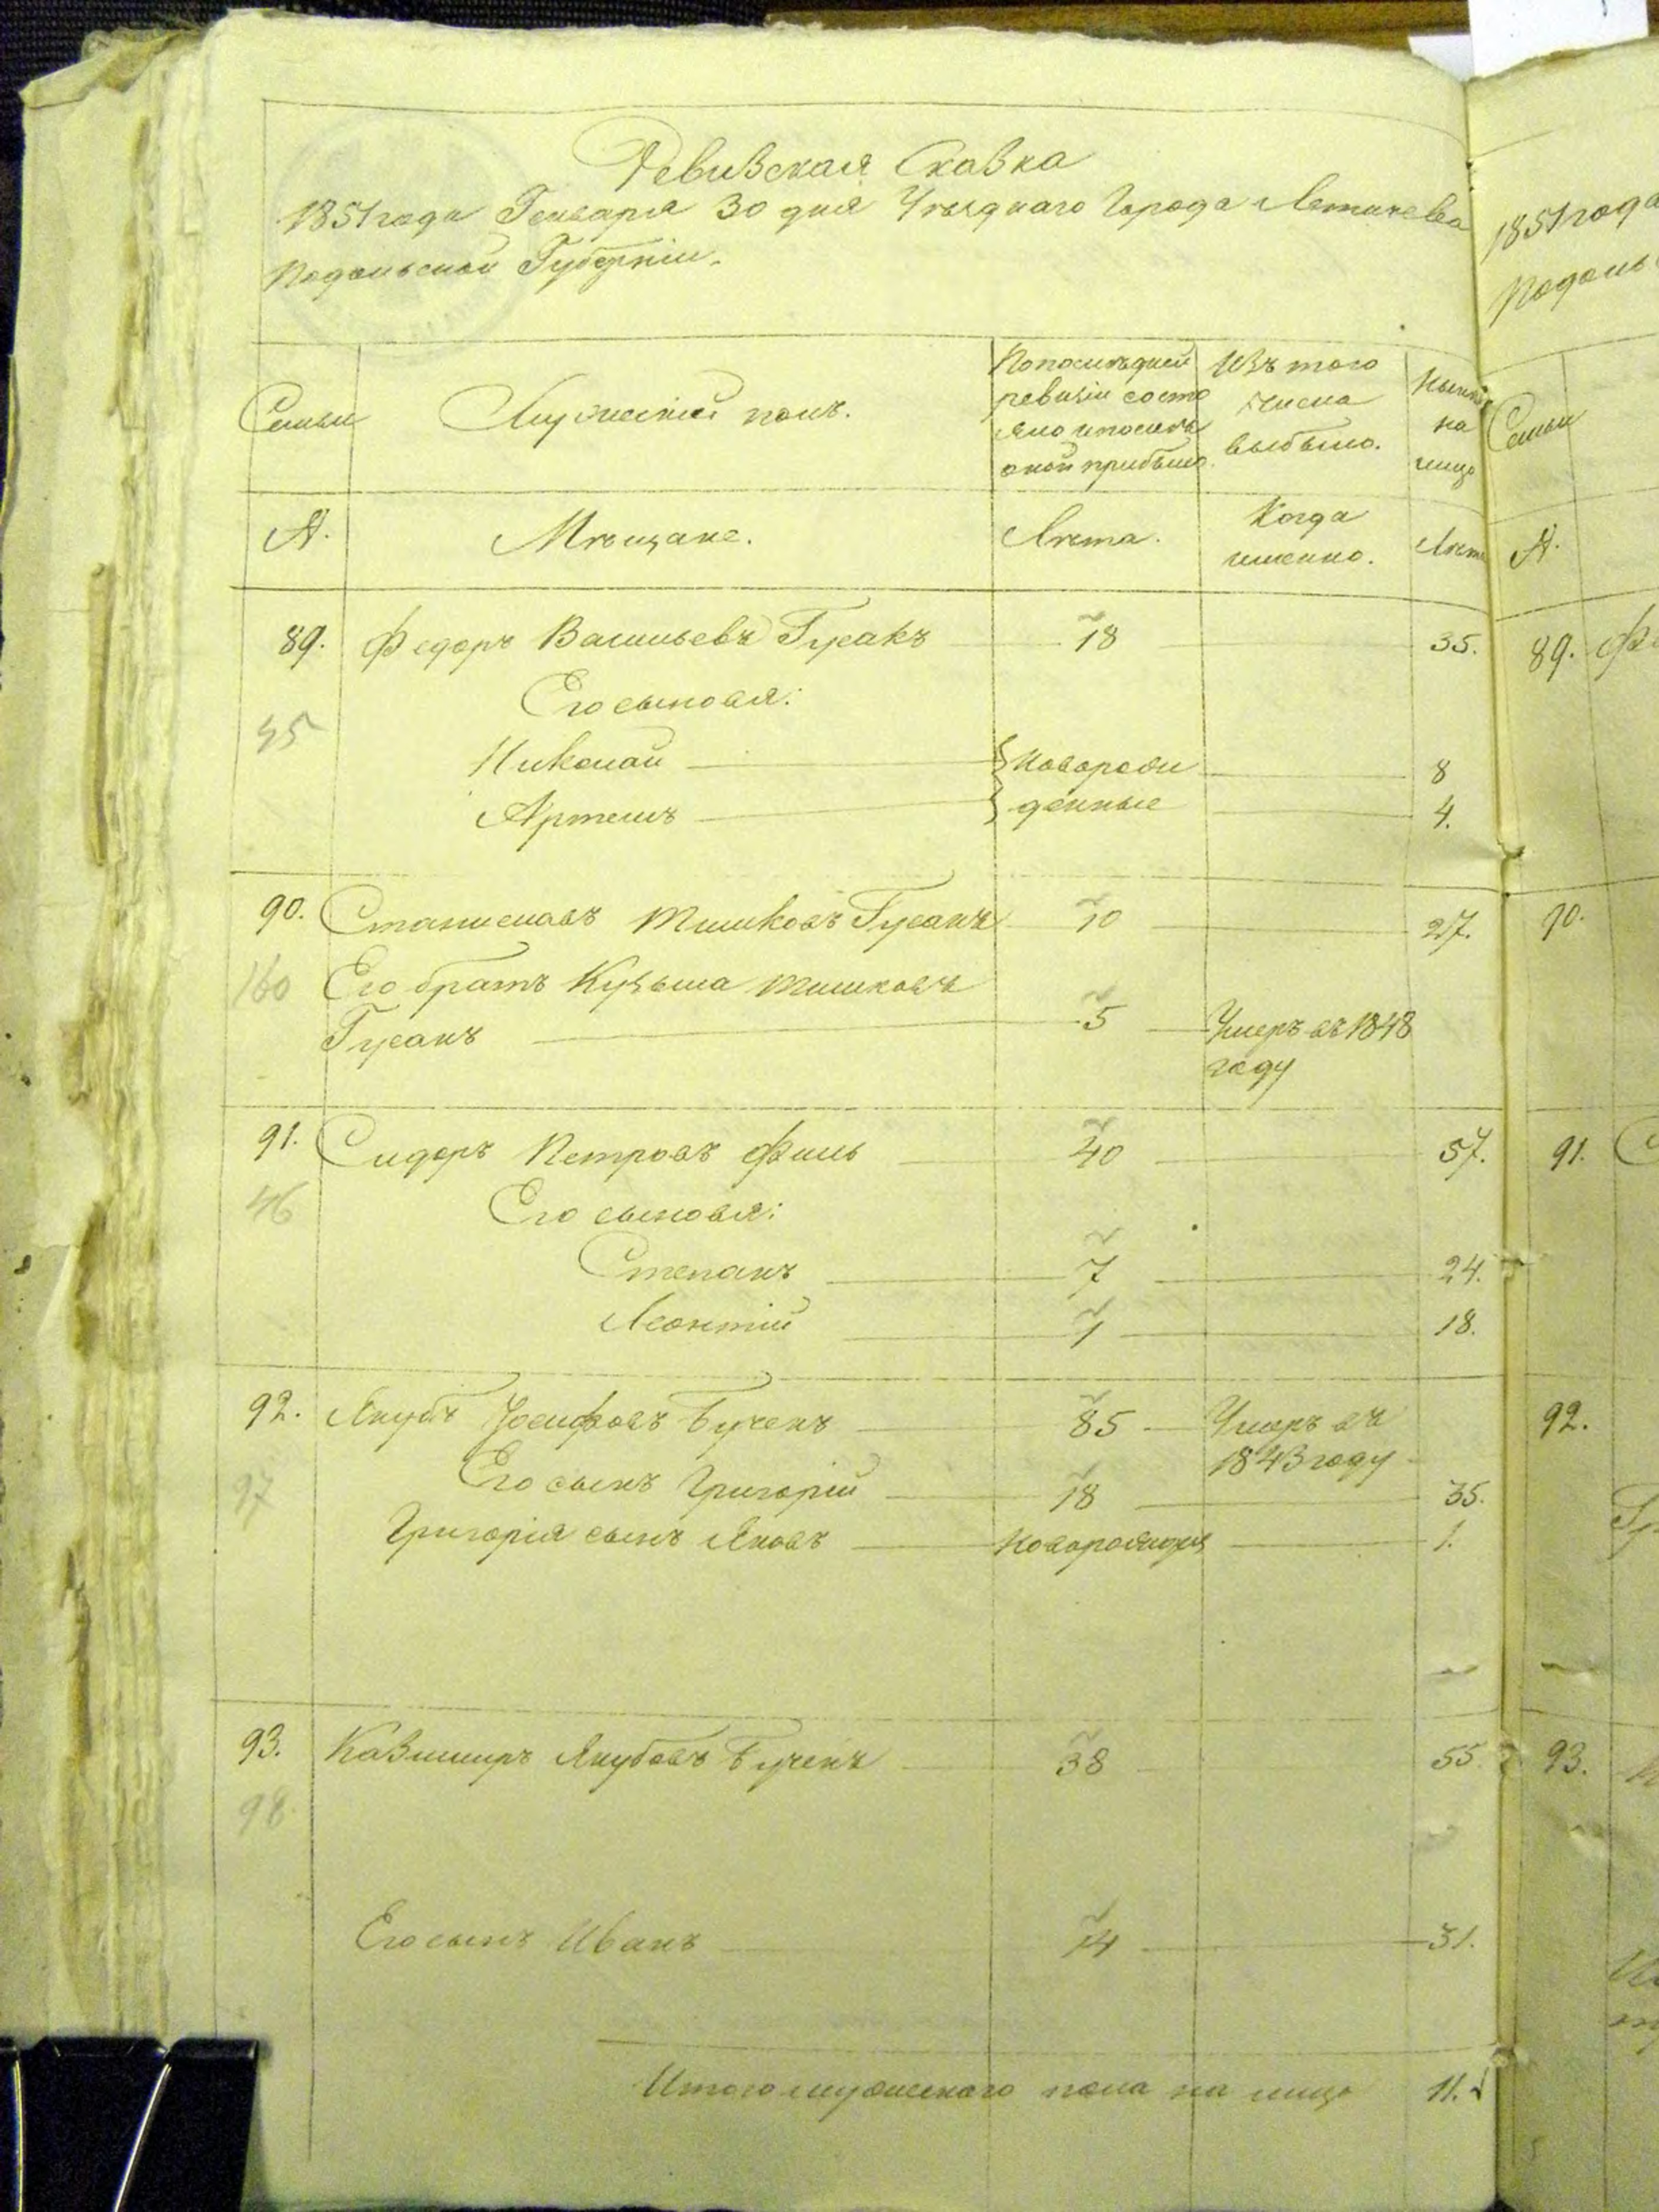 Ревизская Сказка
1851 года Генваря 30 дня Уѣзднаго Города Летичева
Подольской Губерніи.
Семьи
Мужескій полъ.
По послѣдней
ревизіи состо
яло и послѣ
оной прибыло.
Изъ того
числа
выбыло.
Нынѣ
на
лицо
№.
Мѣщане.
Лѣта.
Когда
именно.
Лѣта
89. Федоръ Васильевъ Гусакъ 18 35.
45
Его сыновья:
Николай новорож 8
Артемъ денные 4.
90. Станиславъ Тишковъ Гусакъ 10 27.
160 Его братъ Кузьма Тишковъ
Гусакъ 5 Умеръ въ 1848
году
91. Сидоръ Петровъ Филь 40 57.
46
Его сыновья:
Степанъ 7 24.
Леонтій 1 18.
92. Якубъ Іосифовъ Бученъ 85 Умеръ въ
1843 году
97 Его сынъ Григорій 18 35.
Григорія сынъ Яковъ новорожден 1.
93. Казимиръ Якубовъ Бученъ 38 55.
98
Его сынъ Иванъ 14 31.
Итого мужескаго пола на лицо 11.
1851 года
Подоль
Семьи
№.
89. Фе
90.
91. С
92.
Гр
93.